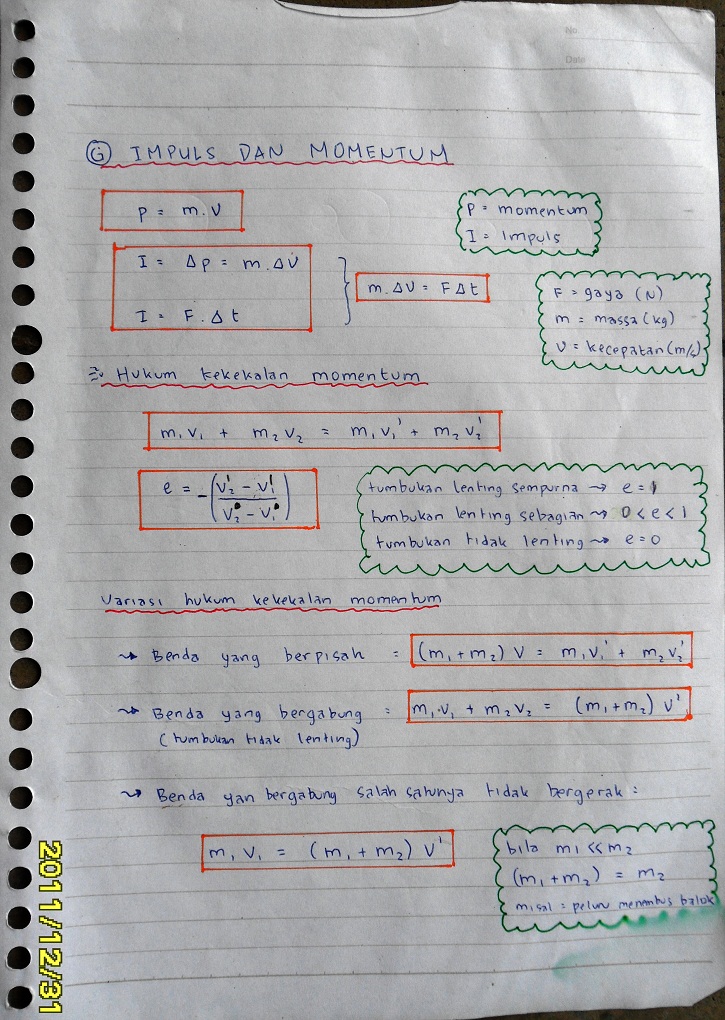 No.
Date
G IMPULS DAN MOMENTUM
P = m.V
P = momentum
I = Impuls
I = Δp = m.ΔV
I = F.Δt
m.ΔV = FΔt
F = gaya (N)
m = massa (kg)
V = kecepatan (m/s)
Hukum kekekalan momentum
m₁V₁ + m₂V₂ = m₁V₁' + m₂V₂'
e = -(V₂' - V₁' / V₂ - V₁)
tumbukan lenting sempurna → e = 1
tumbukan lenting sebagian → 0 < e < 1
tumbukan tidak lenting → e = 0
Variasi hukum kekekalan momentum
→ Benda yang berpisah = (m₁ + m₂) V = m₁V₁' + m₂V₂'
→ Benda yang bergabung : m₁.V₁ + m₂V₂ = (m₁ + m₂) V'
(tumbukan tidak lenting)
→ Benda yan bergabung salah satunya tidak bergerak :
m₁V₁ = (m₁ + m₂) V'
bila m₁ << m₂
(m₁ + m₂) = m₂
misal = peluru menembus balok
2011/12/31